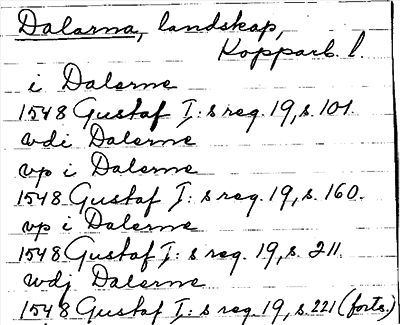 Dalarna, landskap,
Kopparb. l.
i Dalerne
1548 Gustaf I:s reg. 19, s. 101.
wdi Dalerne
vp i Dalerne
1548 Gustaf I:s reg. 19, s. 160.
vp i Dalerne
1548 Gustaf I:s reg. 19, s. 211.
wdj Dalerne
1548 Gustaf I:s reg. 19, s. 221 (forts.)